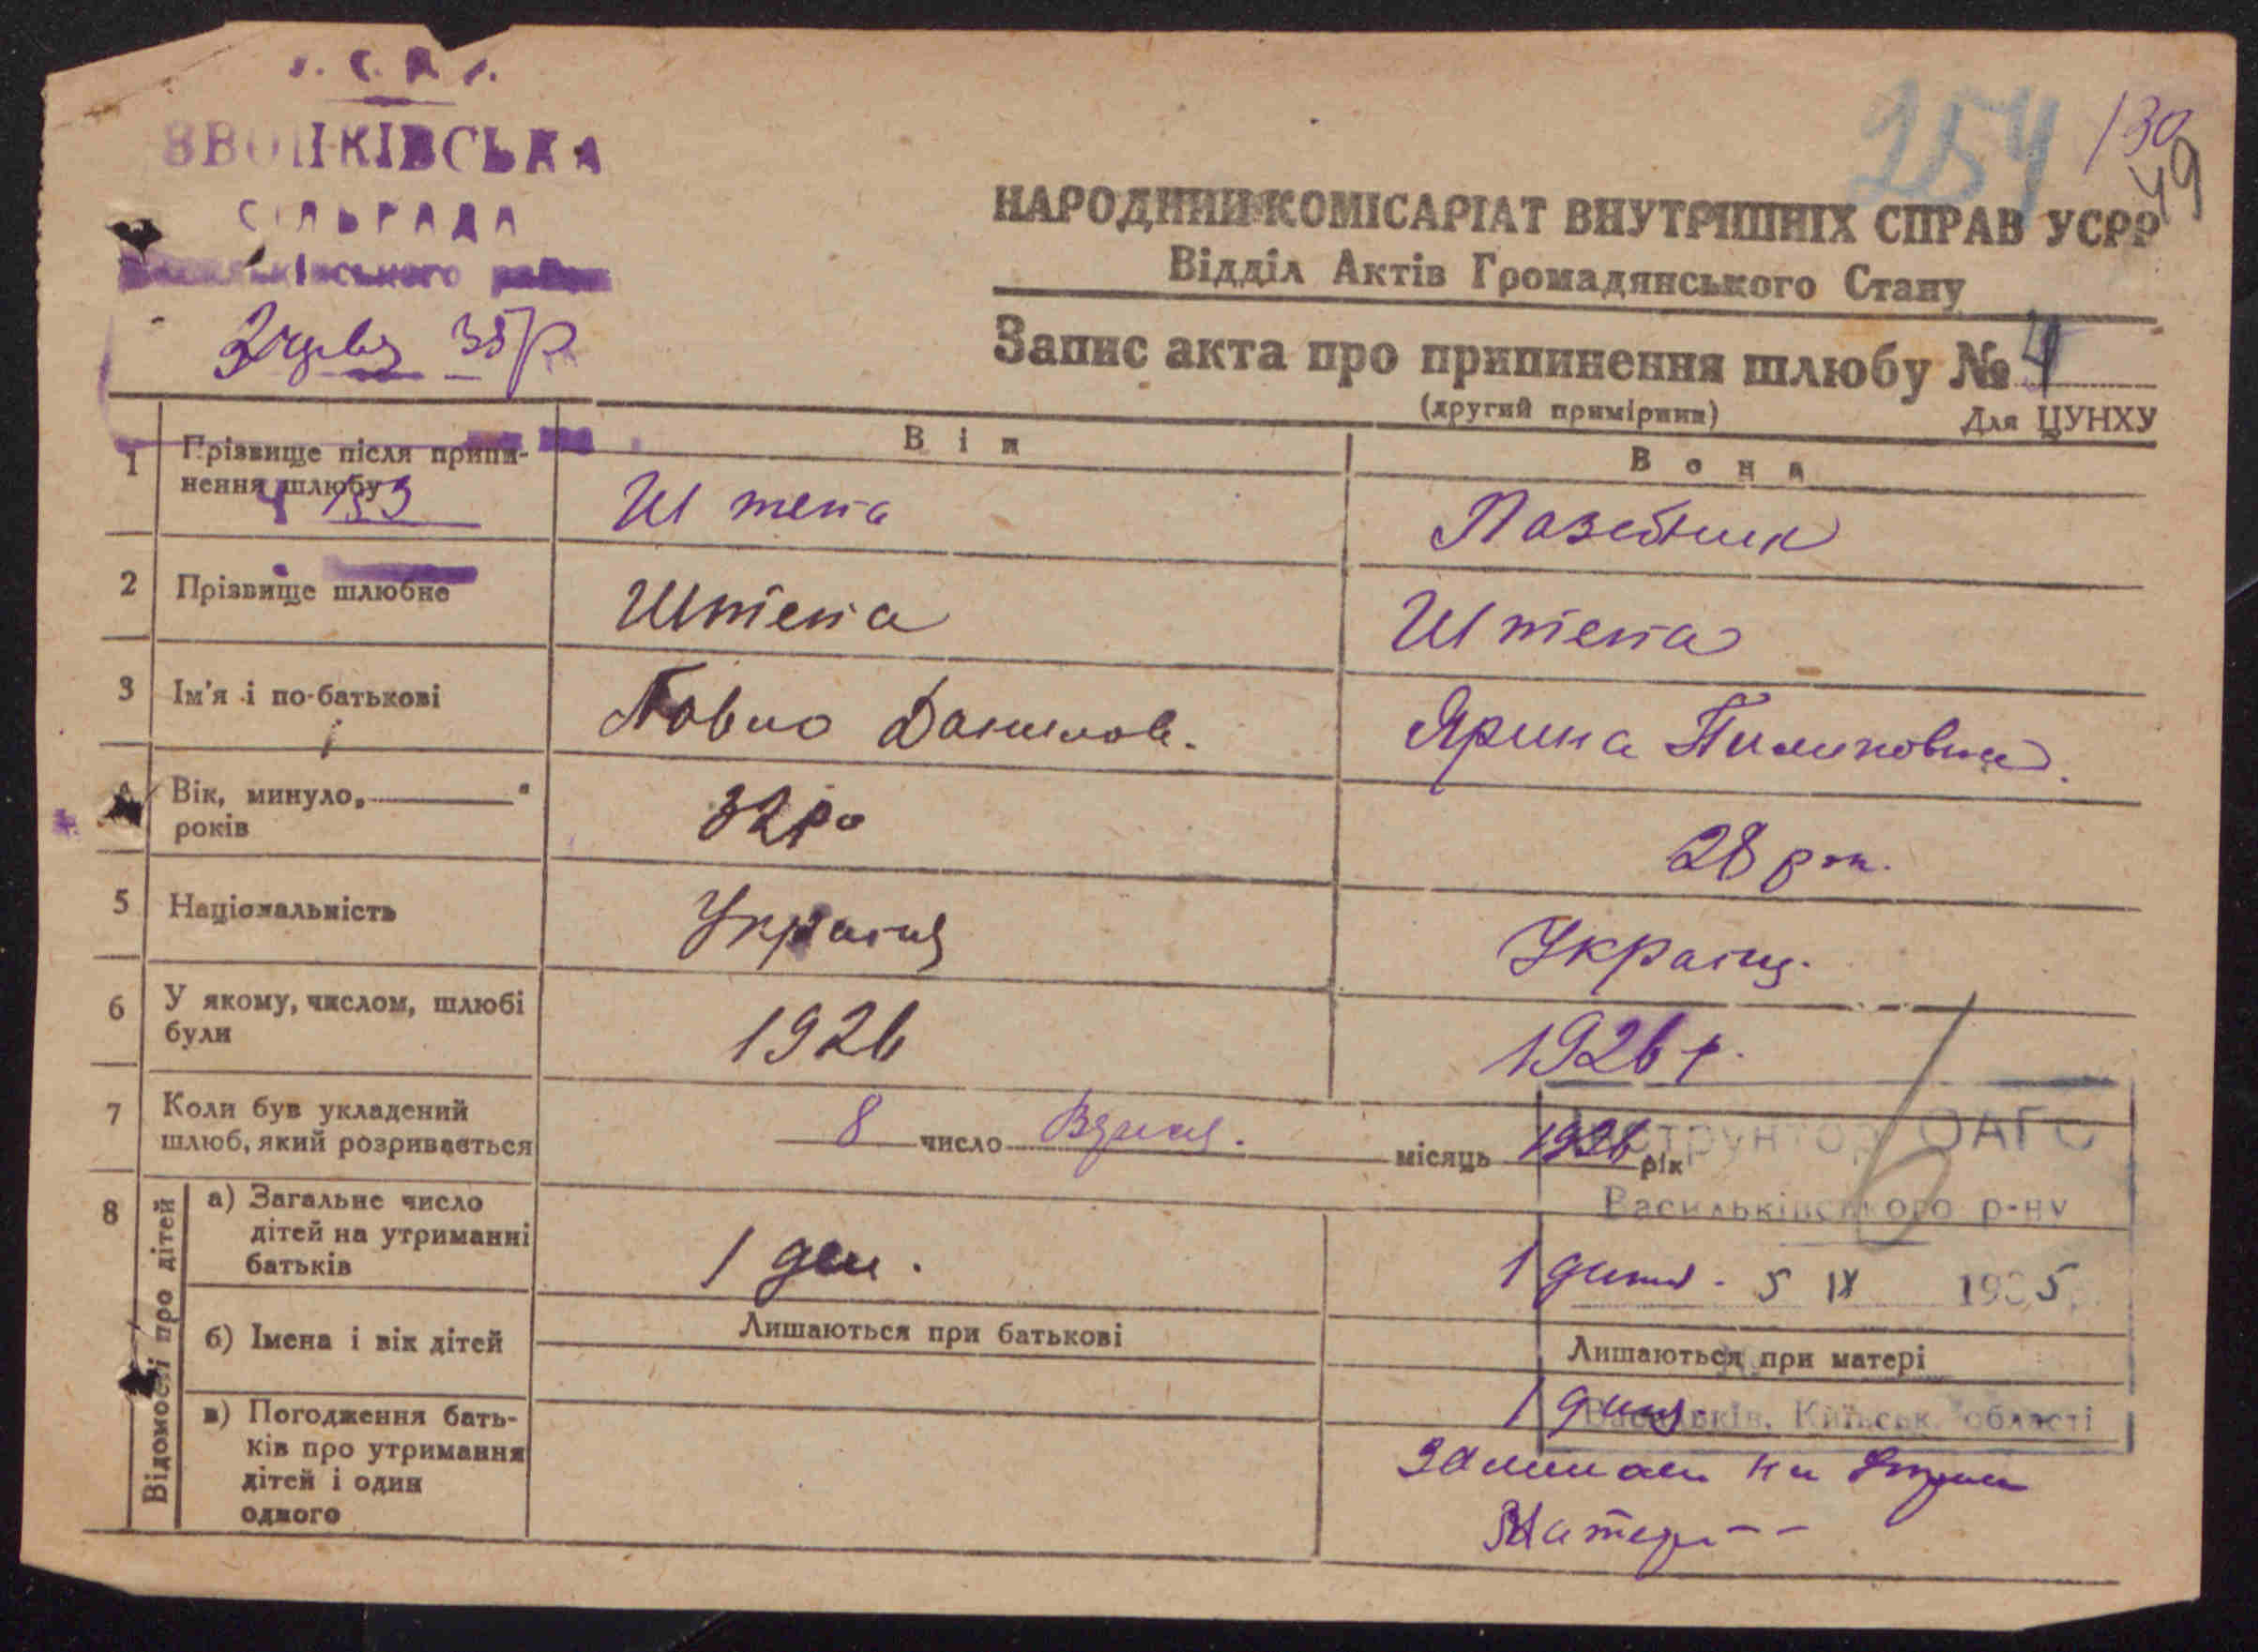 У.С.Р.Р.
ЗВОНКІВСЬКА
СІЛЬРАДА
Васильківського району
2 червня 35 р.
№ 153
254
130
49
НАРОДНИЙ КОМІСАРІАТ ВНУТРІШНІХ СПРАВ УСРР
Відділ Актів Громадянського Стану
Запис акта про припинення шлюбу № 4
(другий примірник) Для ЦУНХУ
Він Вона
1 Прізвище після припи-
нення шлюбу
Штепа Пазебник
2 Прізвище шлюбне Штепа Штепа
3 Ім'я і по-батькові Павло Данилов. Ярина Тимиковна.
4 Вік, минуло „———"
років
32 ро 28 рок.
5 Національність Украінц Украінц.
6 У якому, числом, шлюбі
були
1926 1926 р.
7 Коли був укладений
шлюб, який розривається
8 число місяць 1926 рік
Інструктор ОАГС
Васильківського р-ну
5 IX 1935
Васильків, Київськ. області
8 Відомості про дітей
а) Загальне число
дітей на утриманні
батьків
1 ден. 1 дитя.
б) Імена і вік дітей Лишаються при батькові Лишаються при матері
1 дитя
в) Погодження бать-
ків про утримання
дітей і один
одного
на
Матери